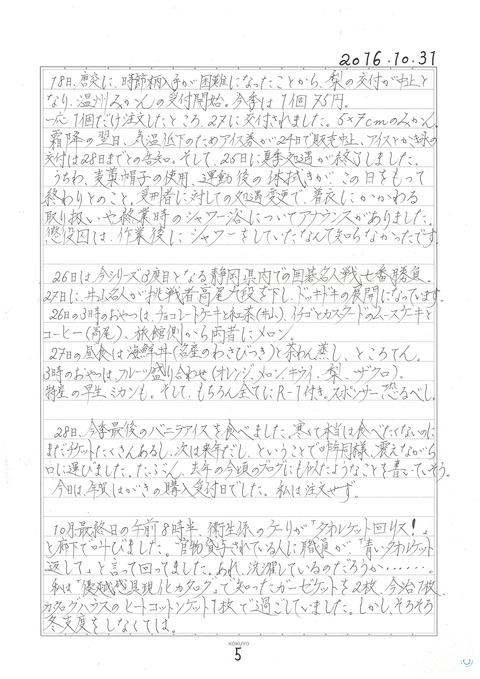 2016.10.31
18日、突然に、時節柄入手が困難になったことから、梨の交付が中止と
なり、温州みかんの受付開始。今季は1個75円。
一応1個だけ注文したところ、27に交付されました。5×7cmのみかん。
霜降の翌日、気温低下のためアイス券が24日で販売中止、アイスとかき氷の
交付は28日までとの告知。そして、26日に夏季処遇が終了しました。
うちわ、麦藁帽子の使用、運動後の体拭きが、この日をもって
終わりとのこと。受刑者に対しての処遇変更で、着衣にかかわる
取り扱いや終業時のシャワー浴についてアナウンスがありました。
懲役囚は、作業後にシャワーをしていたなんて知らなかったです。
26日は今シリーズ3度目となる静岡県内での囲碁名人戦七番勝負。
27日に、井山名人が挑戦者高尾九段を下し、ドッキドキの展開になっています。
26日の3時のおやつは、チョコレートケーキと紅茶(井山)、イチゴとカスタードのムースケーキと
コーヒー(高尾)、旅館側から両者にメロン。
27日の昼食は海鮮丼(名産のわさびつき)と茶わん蒸し、ところてん。
3時のおやつは、フルーツ盛り合わせ(オレンジ、メロン、キウイ、梨、ザクロ)。
特産の早生ミカンも。そして、もちろん全てにR-1付き。スポンサー恐るべし。
28日、今季最後のバニラアイスを食べました。寒くて本当は食べたくないのに
まだチケットたくさんあるし、次は来年だし、ということで昨年同様、震えながら
口に運びました。たぶん、去年の今頃のブログにも似たようなことを書いていそう。
今日は、年賀はがきの購入受付日でした。私は注文せず。
10月最終日の午前8時半、衛生係の が「タオルケット回収!」
と廊下で叫びました。官物貸与されている人に職員が、「青いタオルケット
返して」と言って回ってました。あれ、洗濯しているのだろうか‥‥‥。
私は「 カタログ」で知ったガーゼケットを2枚、今治1枚、
カタログハウスのヒートコットンケット1枚で過ごしていました。しかし、そろそろ
冬支度をしなくては。
KOKUYO
5